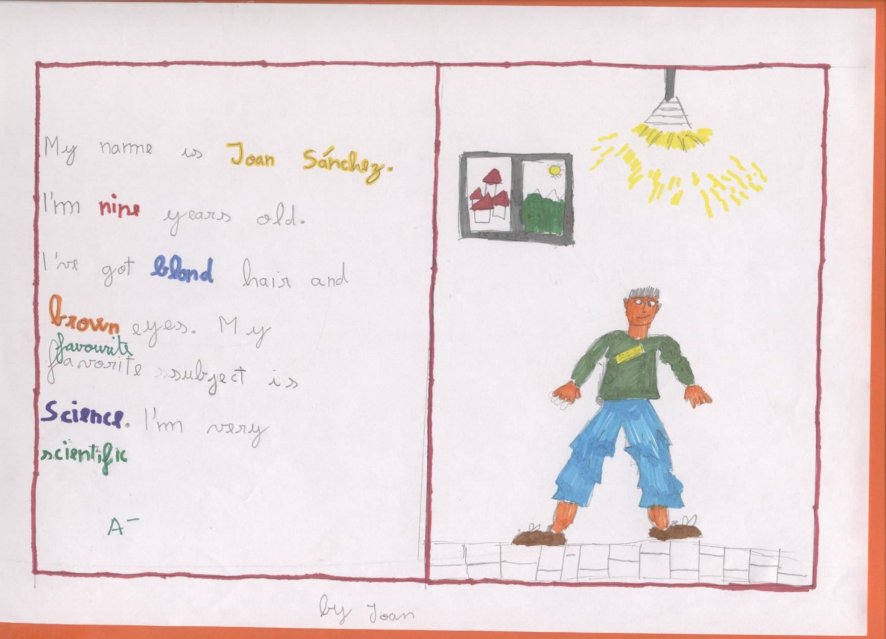 My name is Joan Sánchez.
I'm nine years old.
I've got blond hair and
brown eyes. My
favourite
favorite subject is
Science. I'm very
scientific
A-
by Joan